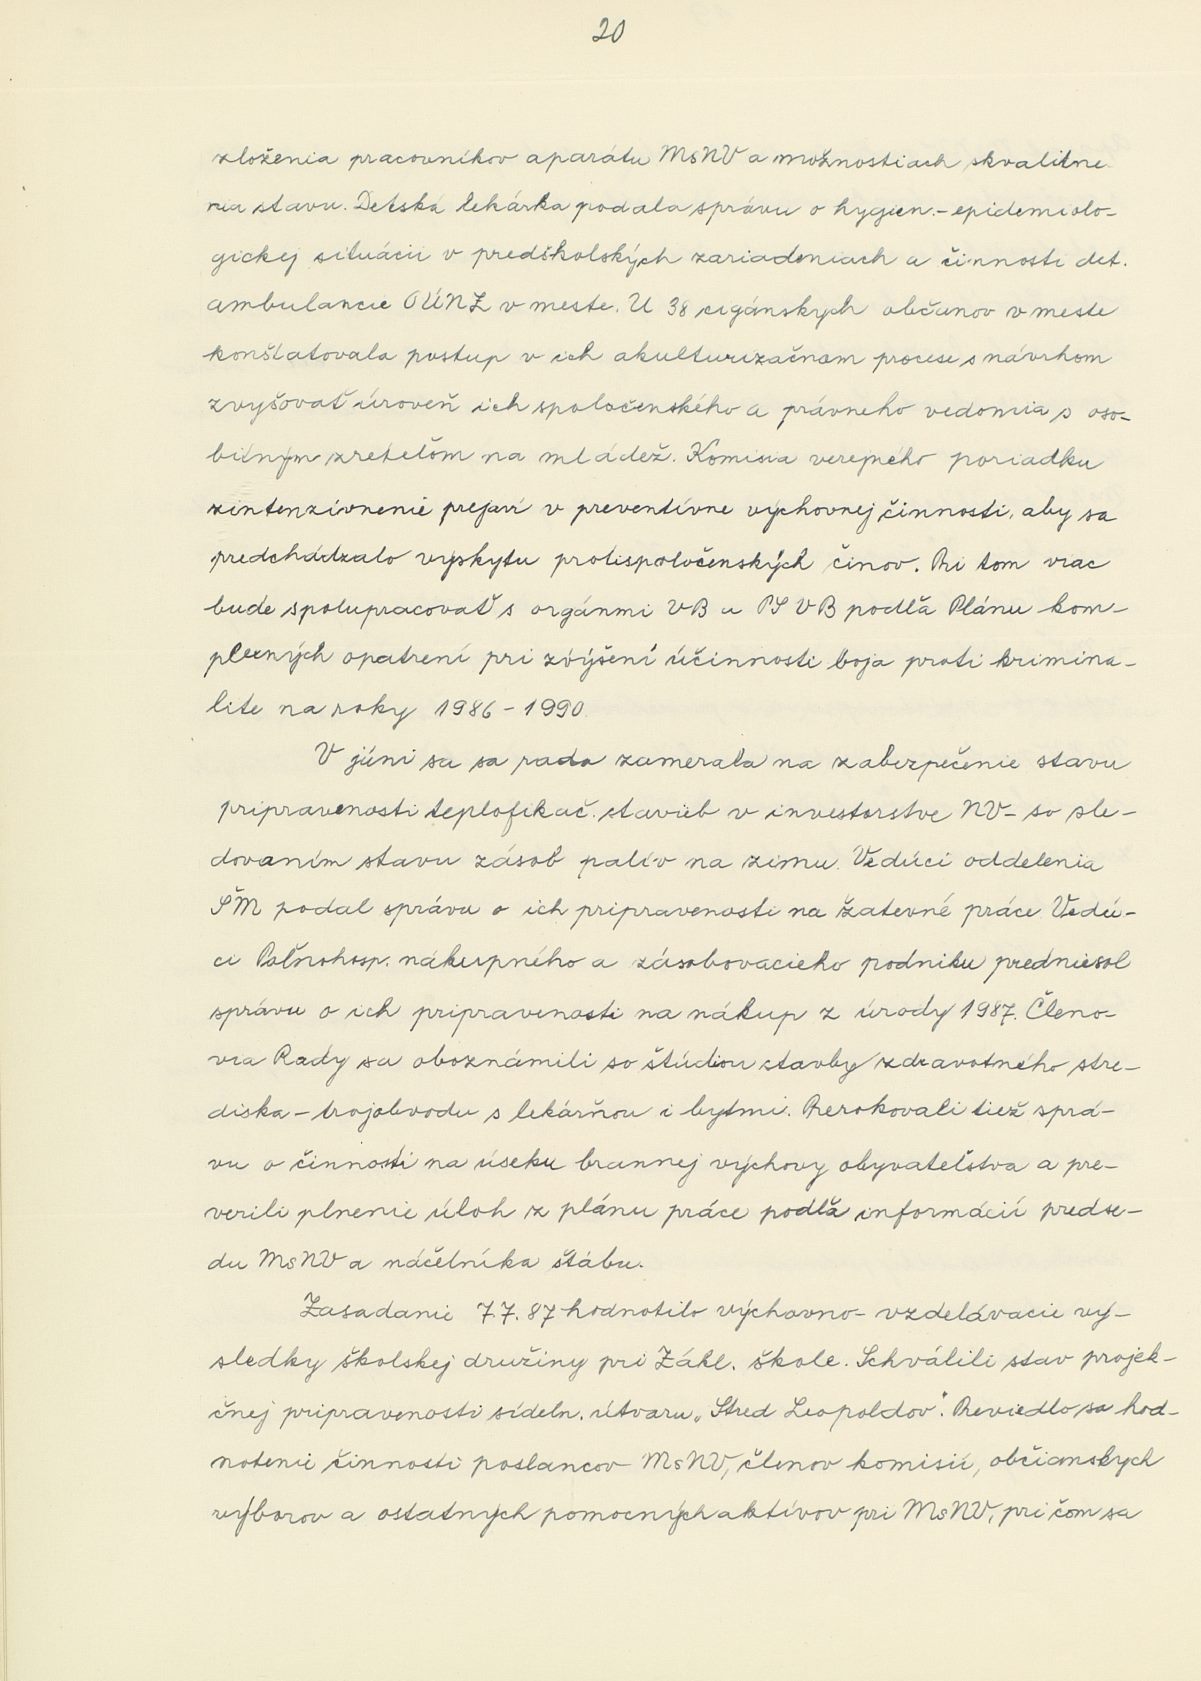 20
zloženia pracovníkov aparátu MsNV a možnostiach skvalitne
nia stavu. Detská lekárka podala správu o hygien.-epidemiolo-
gickej situácii v predškolských zariadeniach a činnosti det.
ambulancie OÚNZ v meste. U 38 cigánskych občanov v meste
konštatovala postup v ich akulturizačnom procese s návrhom
zvyšovať úroveň ich spoločenského a právneho vedomia s oso-
bitným zreteľom na mládež. Komisia verejného poriadku
zintenzívnenie prejaví v preventívne výchovnej činnosti, aby sa
predchádzalo výskytu protispoločenských činov. Pri tom viac
bude spolupracovať s orgánmi VB a PS VB podľa Plánu kom-
plexných opatrení pri zvýšení účinnosti boja proti krimina-
lite na roky 1986-1990.
V júni sa sa rada zamerala na zabezpečenie stavu
pripravenosti teplofikač. stavieb v investorstve NV- so sle-
dovaním stavu zásob palív na zimu. Vedúci oddelenia
ŠM podal správu o ich pripravenosti na žatevné práce. Vedú-
ci Poľnohosp. nákupného a zásobovacieho podniku predniesol
správu o ich pripravenosti na nákup z úrody 1987. Členo-
via Rady sa oboznámili so štúdiou stavby zdravotného stre-
diska - trojobvodu s lekárňou i bytmi. Prerokovali tiež sprá-
vu o činnosti na úseku brannej výchovy obyvateľstva a pre-
verili plnenie úloh z plánu práce podľa informácií predse-
du MsNV a náčelníka štábu.
Zasadanie 7.7.87 hodnotilo výchovno- vzdelávacie vý-
sledky školskej družiny pri Zákl. škole. Schválili stav projek-
čnej pripravenosti sídeln. útvaru „Stred Leopoldov". Previedlo sa hod-
notenie činnosti poslancov MsNV, členov komisií, občianskych
výborov a ostatných pomocných aktívov pri MsNV, pri čom sa